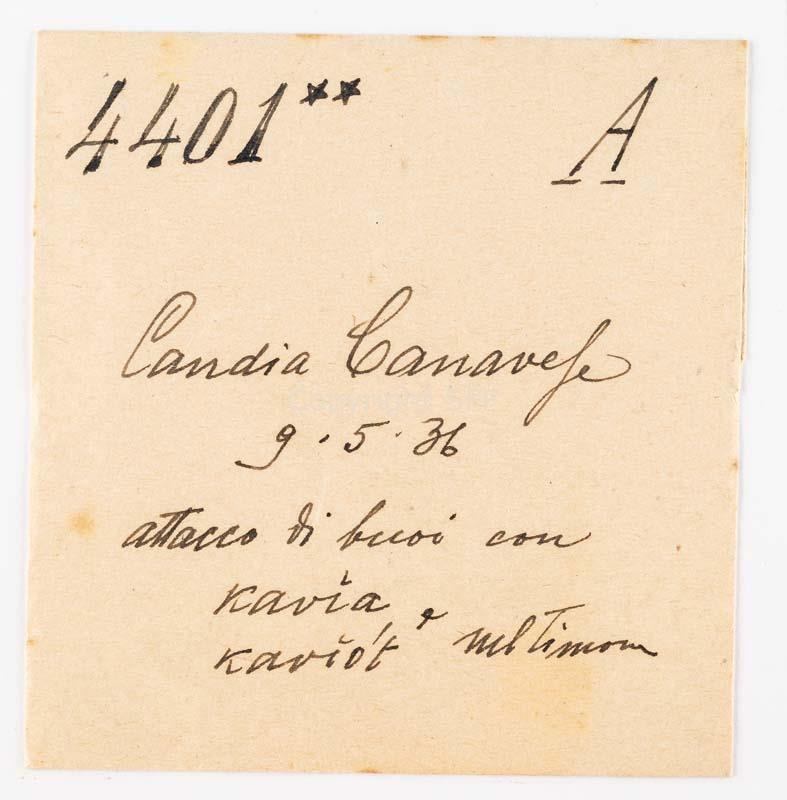 4401** A
Candia Canavese
9.5.36
attacco di buoi con
kavĭa e
kavĭót nel timone